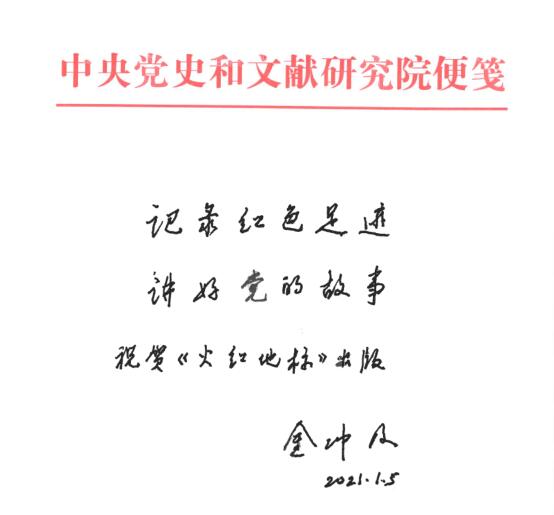 中央党史和文献研究院便笺
记录红色足迹
讲好党的故事
祝贺《火红地标》出版
金冲及
2021.1.5